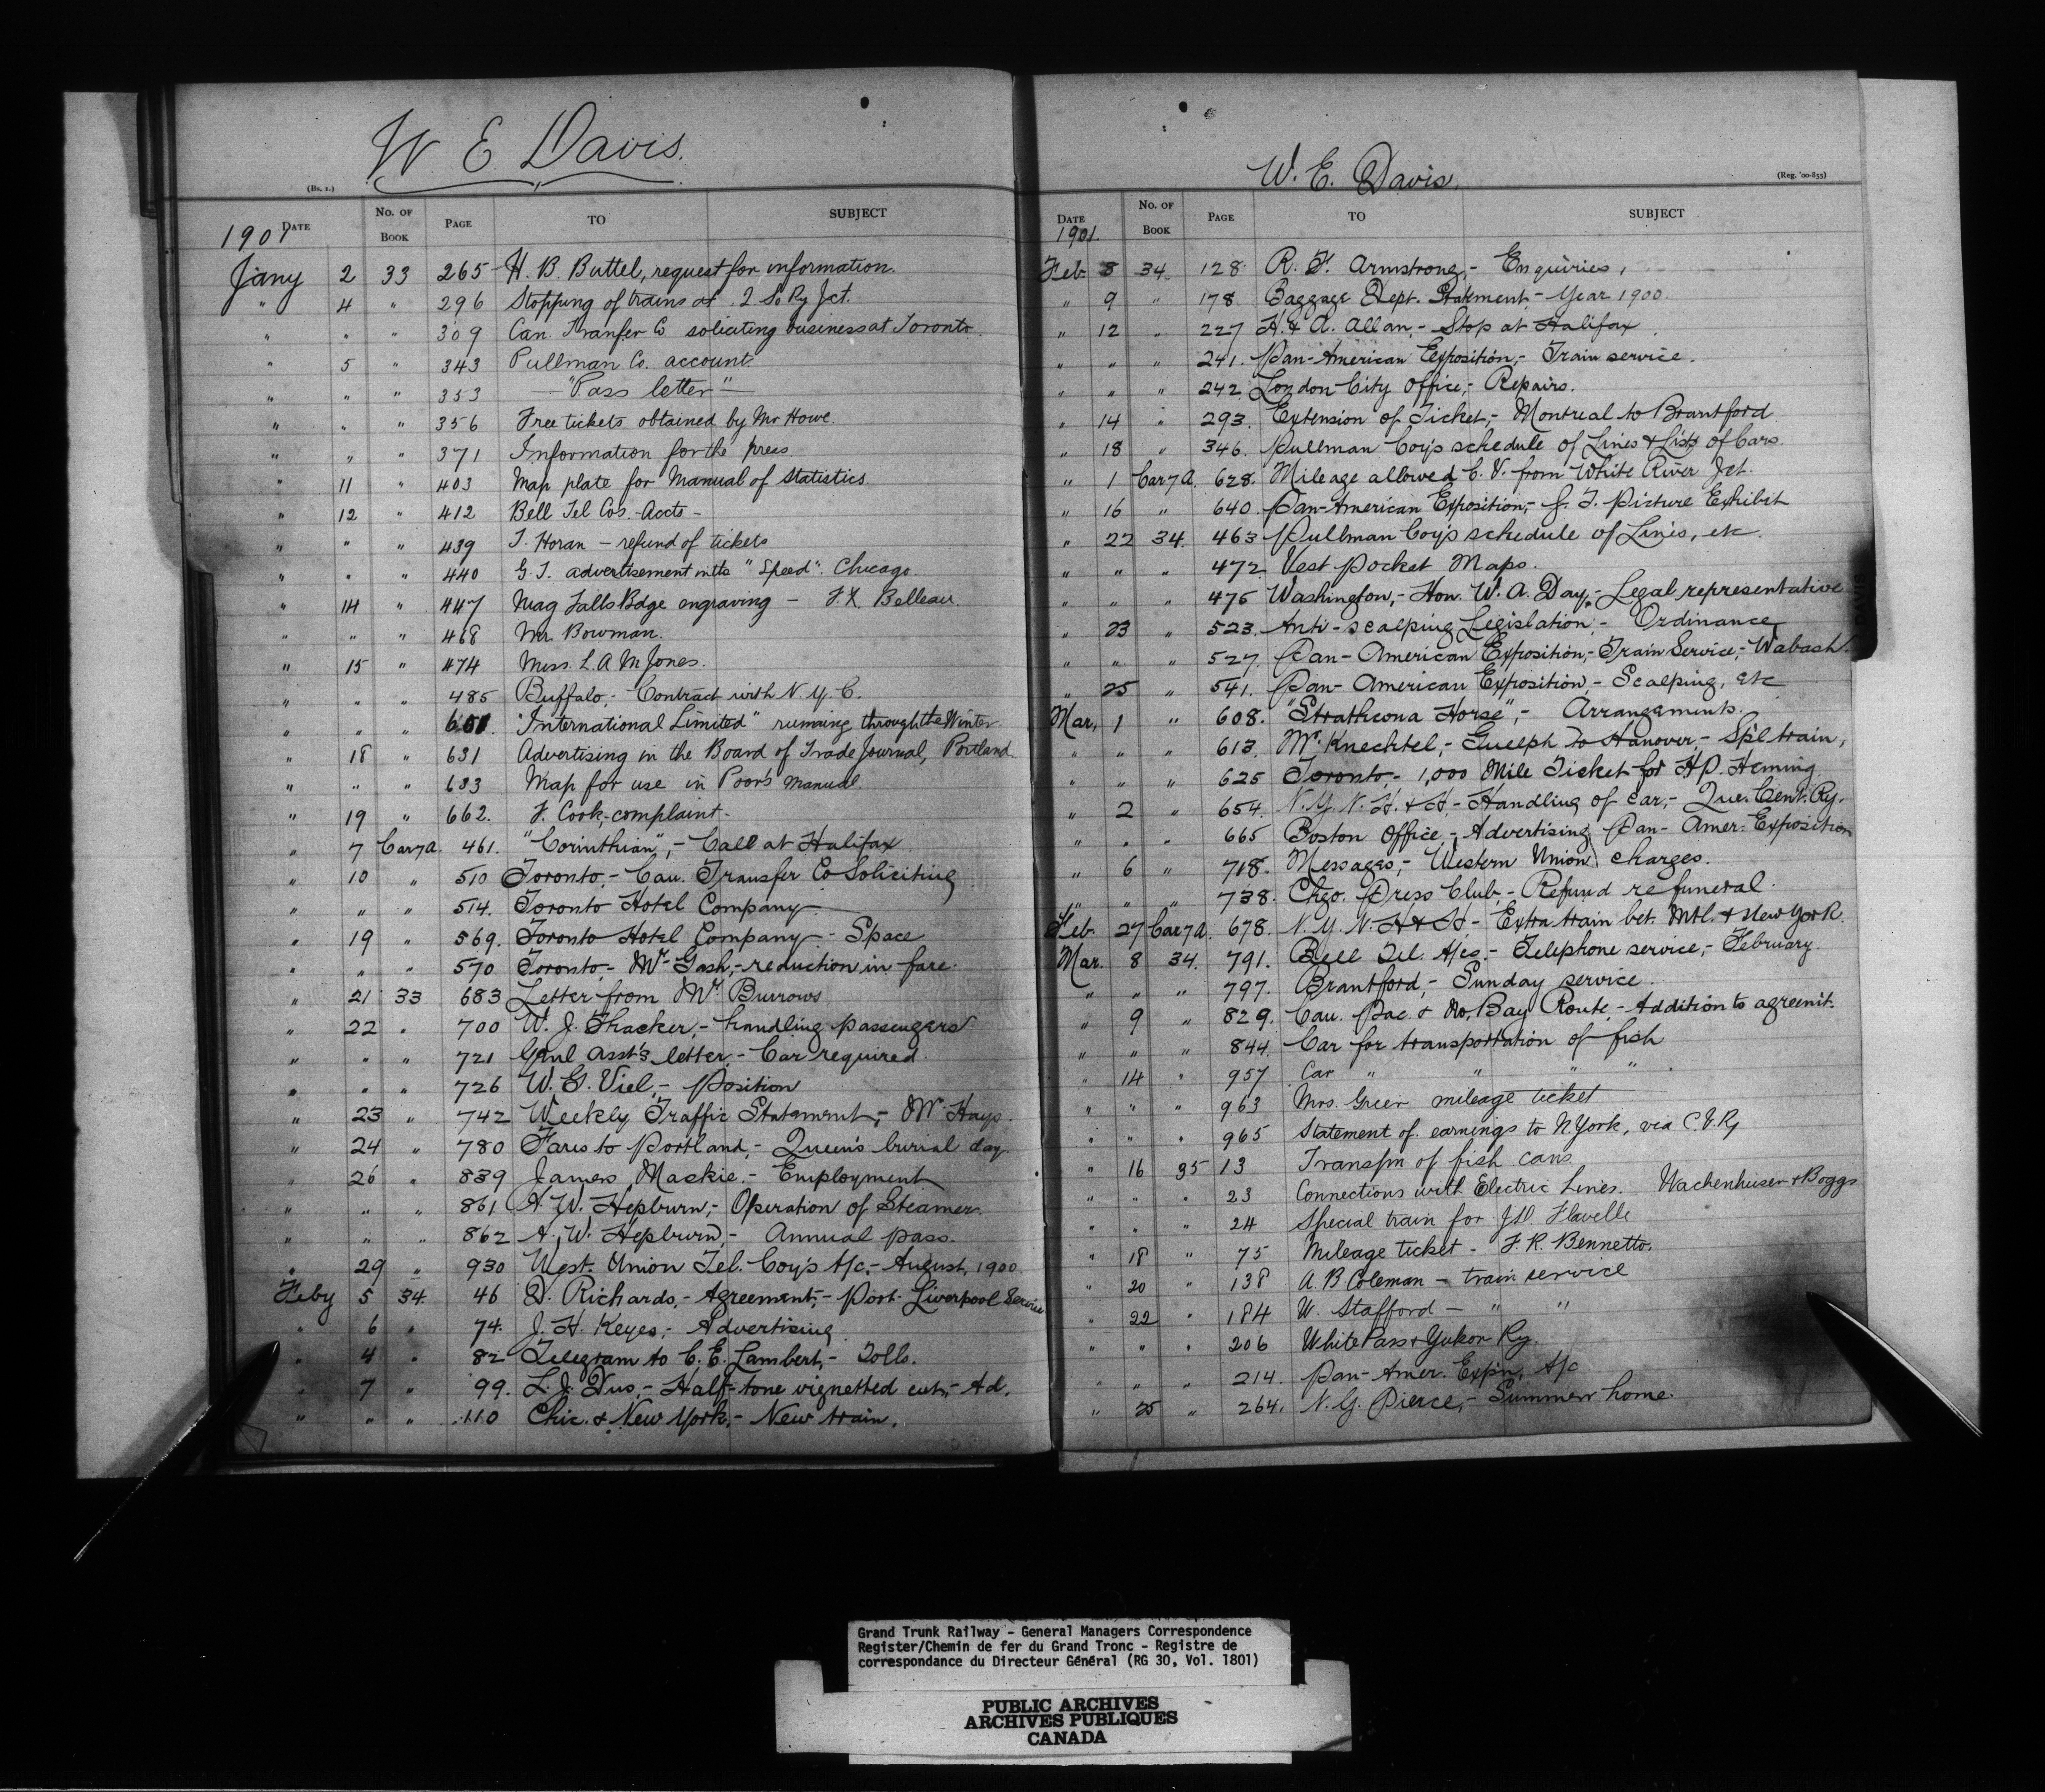 W. E. Davis.
(Bs. 1.)
DATE No. OF BOOK PAGE TO SUBJECT
1901
Jany 2 33 265 H. B. Buttel, request for information.
" 4 " 296 Stopping of trains at Jct.
" " " 309 Can. Tranfer Co soliciting business at Toronto.
" 5 " 343 Pullman Co. account.
" " " 353 — "Pass letter" —
" " " 356 Free tickets obtained by Mr Howe.
" " " 371 Information for the press
" 11 " 403 Map plate for Manual of Statistics.
" 12 " 412 Bell Tel Cos. - Accts -
" " " 439 T. Horan — refund of tickets
" " " 440 G. T. advertisement in the "Speed". Chicago.
" 14 " 447 Niag Falls Bdge engraving — F. X. Belleau.
" " " 468 Mr. Bowman.
" 15 " 474 Miss. L. A. M Jones.
" " " 485 Buffalo,- Contract with N. Y. C.
" " " 601. "International Limited" running through the Winter
" 18 " 631 Advertising in the Board of Trade Journal, Portland
" " " 633 Map for use in Poor's Manual.
" 19 " 662. F. Cook,-complaint-
" 7 Car 7a. 461. "Corinthian",- Call at Halifax
" 10 " 510 Toronto,- Can. Transfer Co Soliciting
" " " 514. Toronto Hotel Company
" 19 " 569. Toronto Hotel Company - Space
" " " 570 Toronto,- Mr. Gash,- reduction in fare.
" 21 33 683 Letter from Mr. Burrows
" 22 " 700 W. J. Thacker,- handling passengers
" " " 721 Genl Asst's letter,- Car required.
" " " 726 W. G. Viel,- Position
" 23 " 742 Weekly Traffic Statement,- Mr. Hays.
" 24 " 780 Fares to Portland,- Queen's burial day.
" 26 " 839 James Mackie.- Employment
" " " 861 A. W. Hepburn,- Operation of Steamers.
" " " 862 A. W. Hepburn,- Annual pass.
" 29 " 930 West. Union Tel. Coy's A/c,- August, 1900
Feby 5 34. 46 D. Richards,- Agreement,- Port. Liverpool Service
" 6 " 74. J. H. Keyes,- Advertising.
" 4 " 82 Telegram to C. E. Lambert,- Tolls.
" 7 " 99. L. J. - Half-tone vignetted cut,- Ad.
" " " 110 Chic. & New York,- New train.
W. E. Davis.
(Reg. '00-855)
DATE No. OF BOOK PAGE TO SUBJECT
1901.
Feb. 8 34. 128. R. F. Armstrong,- Enquiries,
" 9 " 178. Baggage Dept. Statement - Year 1900.
" 12 " 227 H. & A. Allan,- Stop at Halifax.
" " " 241. Pan-American Exposition,- Train service.
" " " 242. London City Office,- Repairs.
" 14 " 293. Extension of Ticket,- Montreal to Brantford
" 18 " 346. Pullman Coy's schedule of Lines & Lists of Cars.
" 1 Car 7a. 628. Mileage allowed C. V. from White River Jct.
" 16 " 640. Pan-American Exposition,- G. T. Picture Exhibit
" 22 34. 463 Pullman Coy's schedule of Lines, etc.
" " " 472 Vest Pocket Maps.
" " " 475 Washington,- Hon. W. A. Day,- Legal representative
" 23 " 523. Anti-scalping Legislation,- Ordinance,
" " " 527. Pan-American Exposition,- Train Service,- Wabash.
" 25 " 541. Pan-American Exposition,- Scalping, etc
Mar. 1 " 608. "Strathcona Horse",- Arrangements.
" " " 613. Mr. Knechtel,- Guelph to Hanover,- Sp'l train,
" " " 625 Toronto,- 1,000 Mile Ticket for H.P. Heming
" 2 " 654. N. Y. N. H. & H,- Handling of car,- Que. Cent. Ry.
" " " 665 Boston Office,- Advertising Pan-Amer. Exposition
" 6 " 718. Messages,- Western Union charges.
" " " 738. Chgo. Press Club,- Refund re funeral.
Feb. 27 Car 7a. 678. N. Y. N. H & H - Extra train bet. Mtl. & New York.
Mar. 8 34. 791. Bell Tel. A/cs.- Telephone service,- February.
" " " 797. Brantford,- Sunday service.
" 9 " 829. Can. Pac. & No. Bay Route,- Addition to agreem't.
" " " 844. Car for transportation of fish
" 14 " 957 Car " " " "
" " " 963 Mrs. Green mileage ticket
" " " 965 Statement of earnings to N. York, via C.V.Ry
" 16 35 13 Transpn of fish cans
" " " 23 Connections with Electric Lines. Wachenhuser & Boggs
" " " 24 Special train for J.D. Flavelle
" 18 " 75 Mileage ticket - F. R. Bennetto.
" 20 " 138 A. B. Coleman - train service
" 22 " 184 W. Stafford — " "
" " " 206 White Pass & Yukon Ry.
" " " 214. Pan-Amer. Exp'n. A/c
" 25 " 264. N. G. Pierce,- Summer home.
Grand Trunk Railway - General Managers Correspondence
Register/Chemin de fer du Grand Tronc - Registre de
correspondance du Directeur Général (RG 30, Vol. 1801)
PUBLIC ARCHIVES
ARCHIVES PUBLIQUES
CANADA